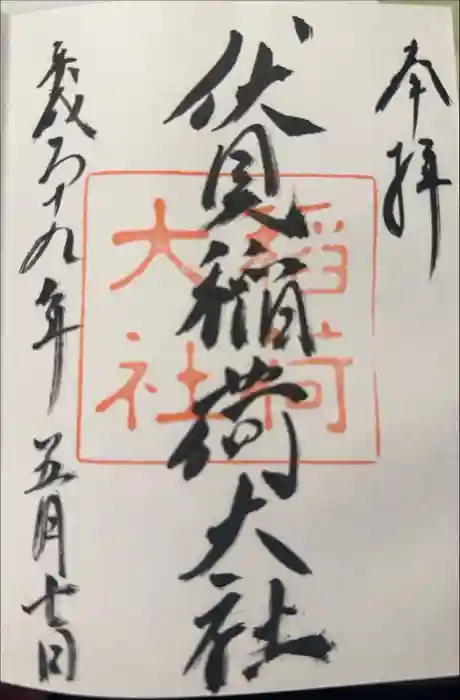 奉拝
伏見稲荷大社
稲荷
大社
平成二十九年 五月七日